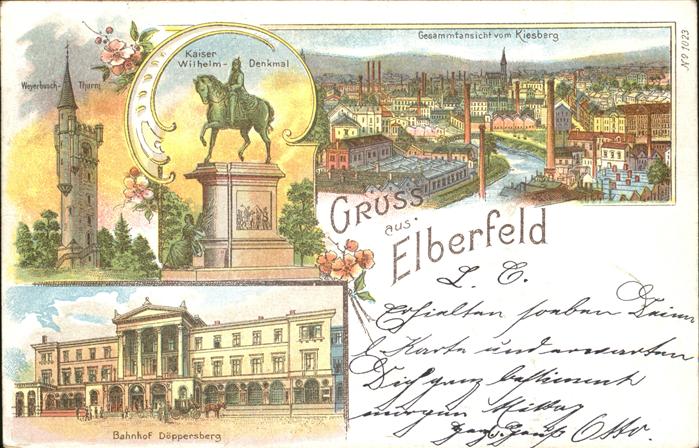 Gesammtansicht vom Kiesberg
No 1023
Kaiser
Wilhelm- Denkmal
Weyerbusch- Thurm
Gruss
aus
Elberfeld
L. C.
Erhielten soeben Deine
l. Karte und erwarten
Dich ganz bestimmt
morgen Mittag
Otto
Bahnhof Döppersberg